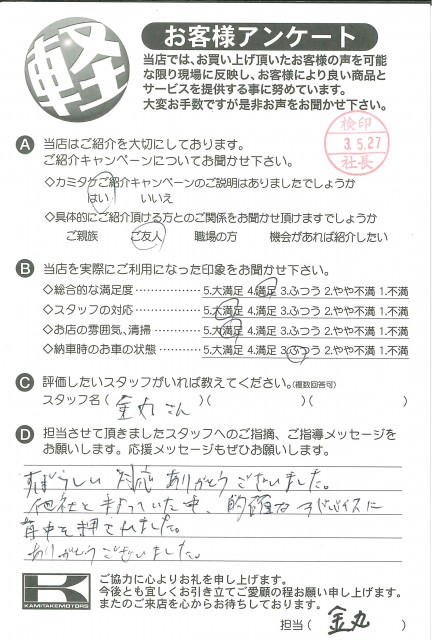 軽
お客様アンケート
当店では、お買い上げ頂いたお客様の声を可能
な限り現場に反映し、お客様により良い商品と
サービスを提供する事に努めています。
大変お手数ですが是非お声をお聞かせ下さい。
検印
3.5.27
社長
A 当店はご紹介を大切にしております。
ご紹介キャンペーンについてお聞かせ下さい。
◇カミタケご紹介キャンペーンのご説明はありましたでしょうか
はい いいえ
◇具体的にご紹介頂ける方とのご関係をお聞かせ頂けますでしょうか
ご親族 ご友人 職場の方 機会があれば紹介したい
B 当店を実際にご利用になった印象をお聞かせ下さい。
◇総合的な満足度 5.大満足 4.満足 3.ふつう 2.やや不満 1.不満
◇スタッフの対応 5.大満足 4.満足 3.ふつう 2.やや不満 1.不満
◇お店の雰囲気、清掃 5.大満足 4.満足 3.ふつう 2.やや不満 1.不満
◇納車時のお車の状態 5.大満足 4.満足 3.ふつう 2.やや不満 1.不満
C 評価したいスタッフがいれば教えてください。(複数回答可)
スタッフ名(金丸さん)( )( )
D 担当させて頂きましたスタッフへのご指摘、ご指導メッセージを
お願いします。応援メッセージもぜひお願いします。
すばらしい 対応 ありがとうございました。
他社と まよっていた中、的確な アドバイスに
背中を押されました。
ありがとうございました。
K
KAMITAKEMOTORS
ご協力に心よりお礼を申し上げます。
今後とも宜しくお引き立てご愛顧の程お願い申し上げます。
またのご来店を心からお待ちしております。
担当(金丸)